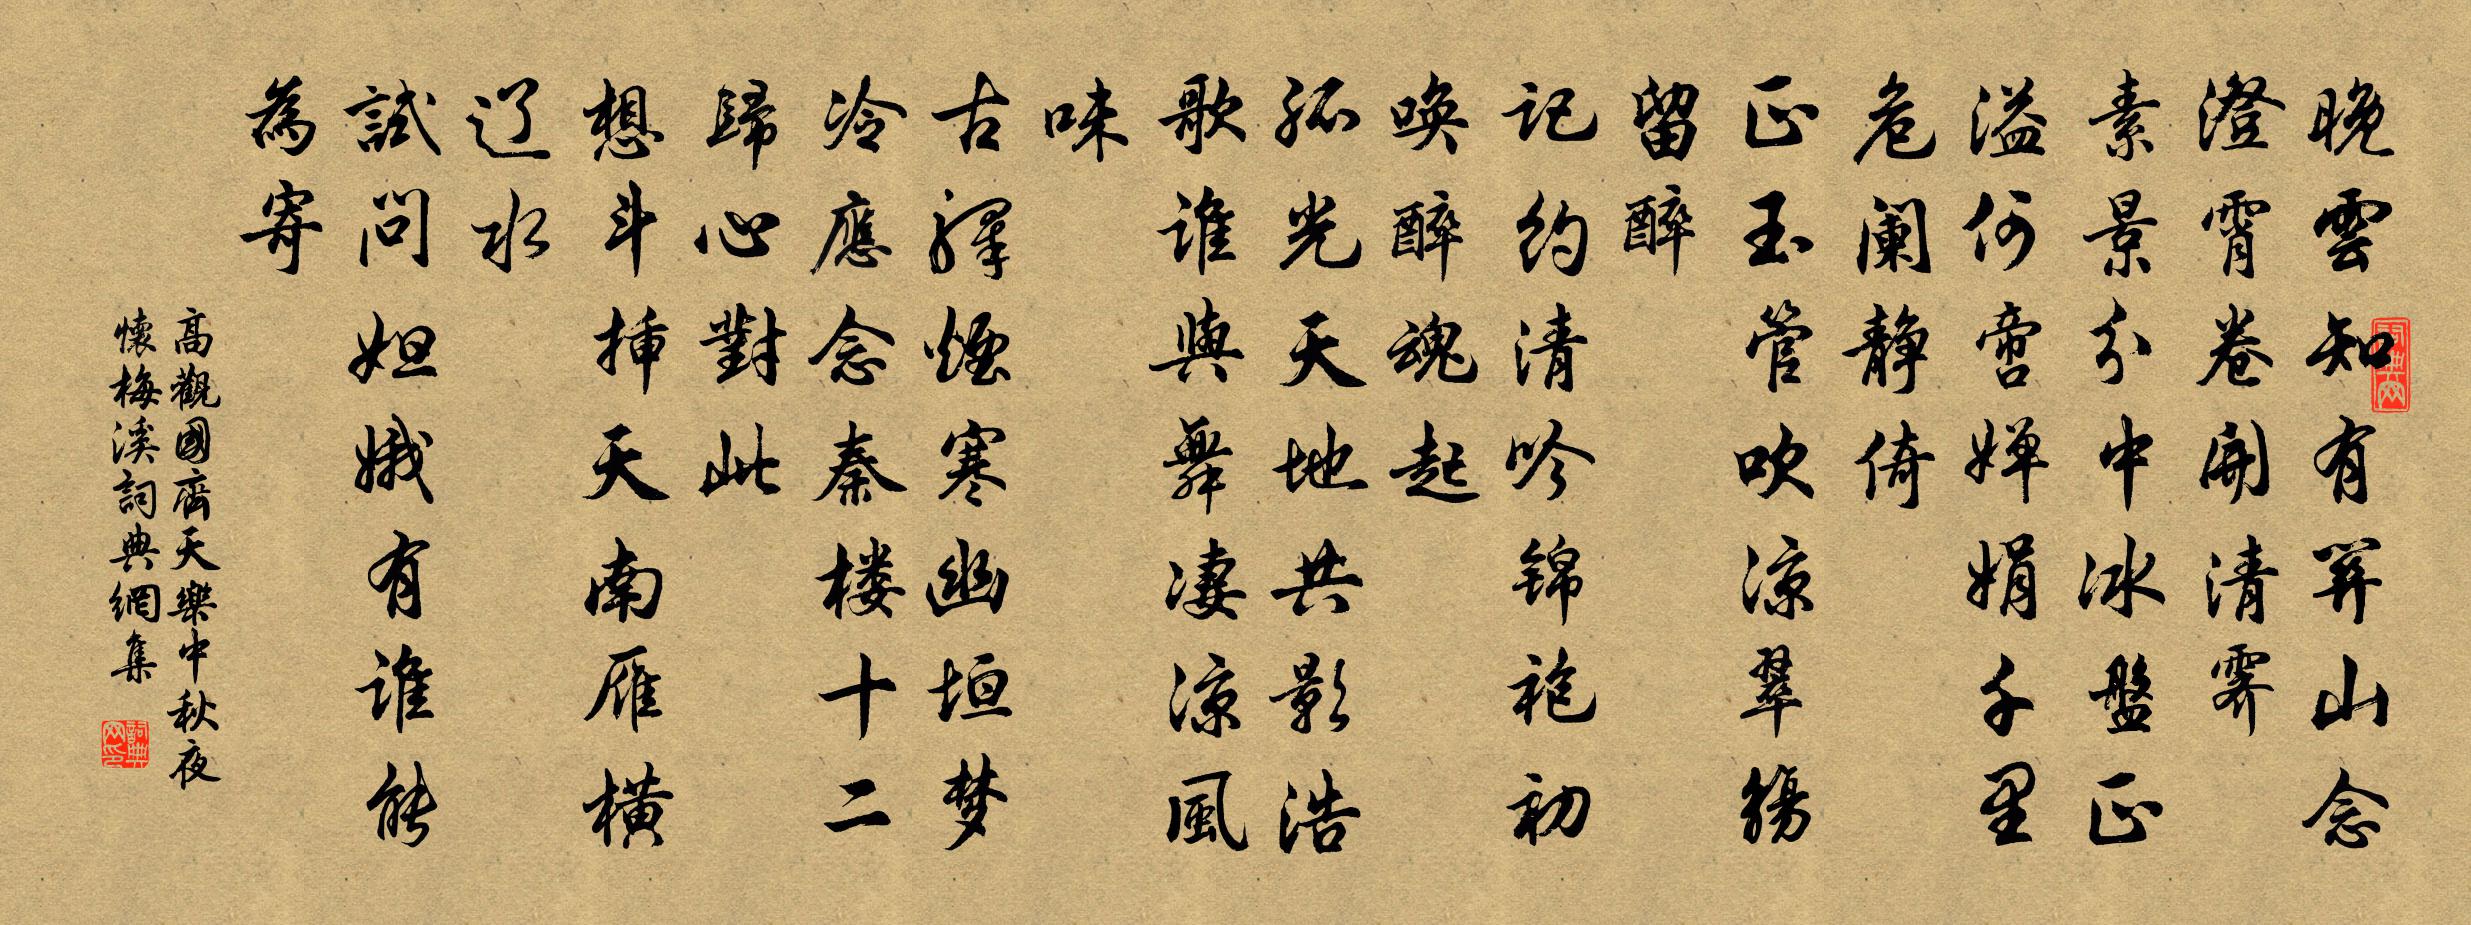 晚雲知有關山念
澄霄卷開清霽
素景分中冰盤正
溢何啻嬋娟千里
危闌静倚
正玉管吹涼翠觴
留醉
記約清吟錦袍初
喚醉魂起
孤光天地共影浩
歌誰與舞凄涼風
味
古驛煙寒幽垣梦
冷應念秦楼十二
歸心對此
想斗插天南雁橫
辽水
試問姮娥有誰能
為寄
高觀國齊天樂中秋夜
懷梅溪詞典網集
詞典网
詞典网印